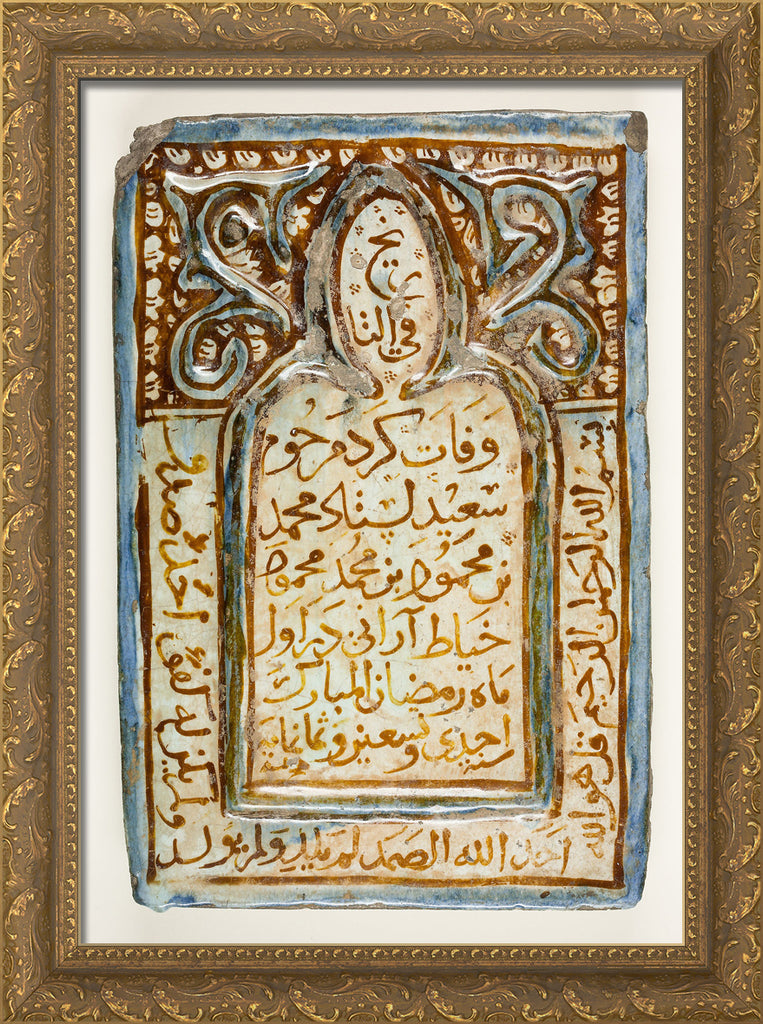 في التا
ريخ
وفات كرد مرحوم
سعيد استاد محمد
بن محمود بن محمد محمود
خياط آرانى در اول
ماه رمضان المبارك
سنة احدى و تسعين و ثمانمائة
بسم الله الرحمن الرحيم قل هو الله
احد الله الصمد لم يلد و لم يولد
و لم يكن له كفوا احد صدق